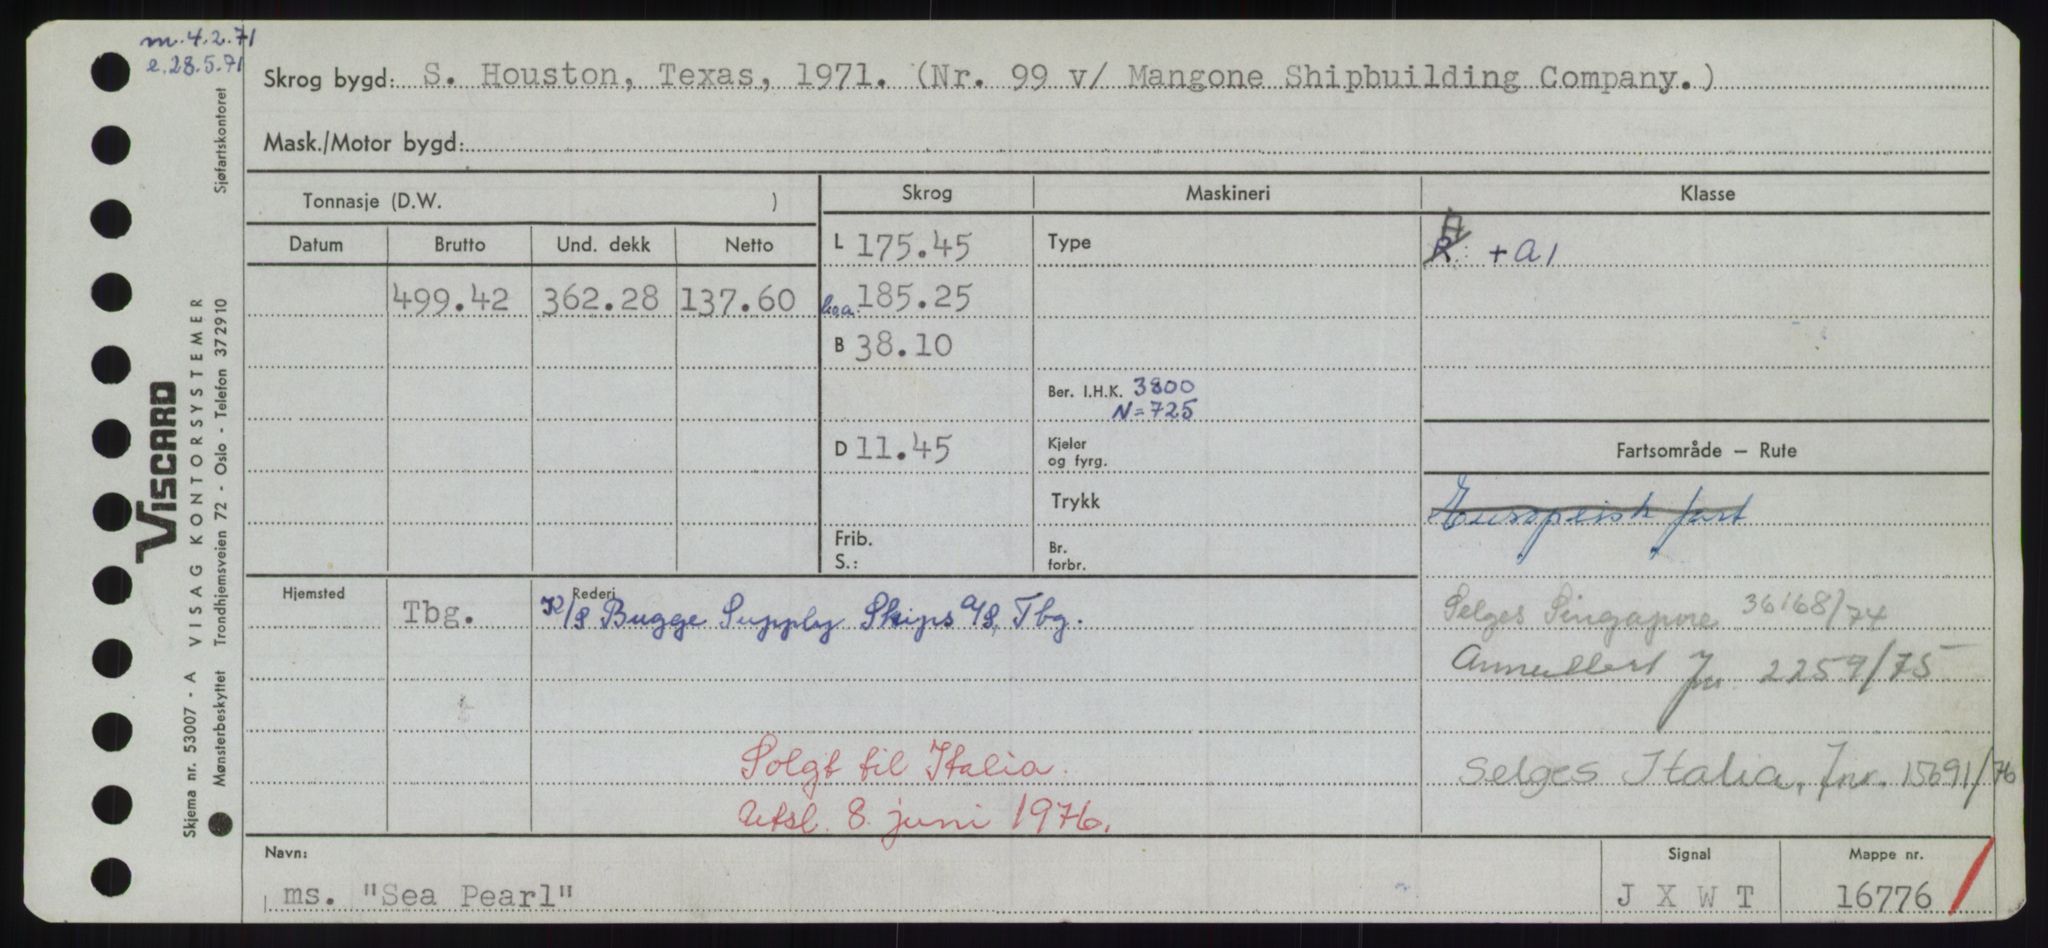 m. 4.2.71
e. 28.5.71
Skrog bygd: S. Houston, Texas, 1971. (Nr. 99 v/ Mangone Shipbuilding Company.)
Mask./Motor bygd:
Tonnasje (D.W. )
Skrog
Maskineri
Klasse
Datum Brutto Und. dekk Netto
L 175.45
Type
+A1
499.42 362.28 137.60
l.o.a. 185.25
B 38.10
Ber. I.H.K. 3800
N=725
D 11.45
Kjeler
og fyrg.
Fartsområde – Rute
Trykk
Europeisk fart
Frib.
S.:
Br.
forbr.
Hjemsted
Tbg.
Rederi
K/S Bugge Supply Skips A/S, Tbg.
Selges Singapore 36168/74
Annullert Jnr. 2259/75
Solgt til Italia.
Utsl. 8. juni 1976.
Selges Italia, Jnr. 15691/76
Navn:
ms. "Sea Pearl"
Signal
J X W T
Mappe nr.
16776
VISCARD
VISAG KONTORSYSTEMER
Skjema nr. 53007 - A
Mønsterbeskyttet Trondhjemsveien 72 - Oslo - Telefon 372910 Sjøfartskontoret